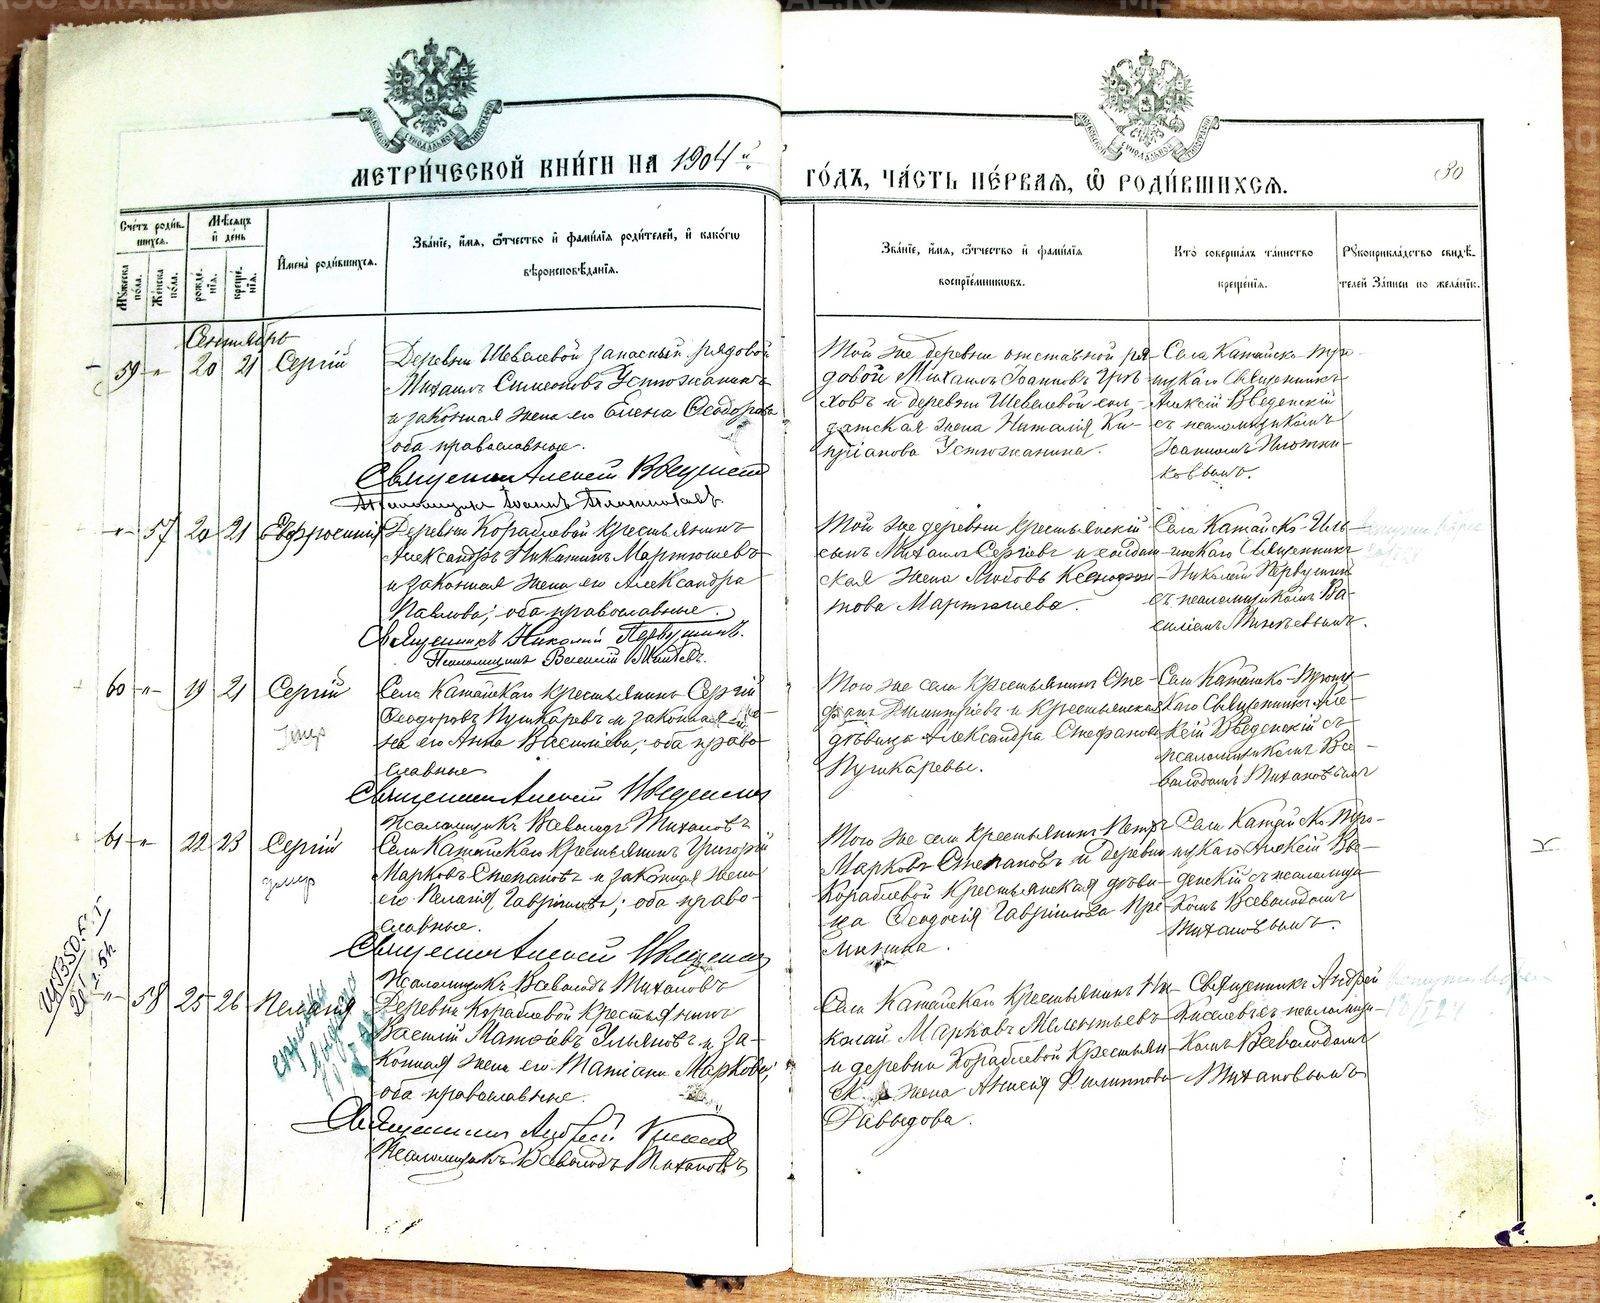 МЕТРИ́ЧЕСКОЙ КНИ́ГИ НА 1904 й.
ГО́ДЪ, ЧА́СТЬ ПЕ́РВАЯ, Ѿ РОДИ́ВШИХСЯ.
30
Сче́тъ роди́в-
шихся.
Му́жеска по́ла.
Же́нска по́ла.
Мѣ́сяцъ и де́нь
рожде́нія.
креще́нія.
Имена̀ роди́вшихся.
Зва́ніе, и́мя, ѻ҆́тчество и фами́лія роди́телей, и како́гѡ
вѣроисповѣ́данія.
Зва́ніе, и́мя, ѻ҆́тчество и фами́лія
воспріе́мниковъ.
Кто̀ соверша́лъ та́инство
креще́нія.
Рꙋкоприкла́дство свидѣ́-
телей за́писи по жела́нію.
Сентябрь
59 " 20 21 Сергій
Деревни Шевелевой запасный рядовой
Михаилъ Симеоновъ Устюжанинъ
и законная жена его Елена Ѳеодорова
оба православные.
Священникъ Алексій Введенскій
Псаломщикъ Іоаннъ Плотниковъ
Той же деревни отставной ря-
довой Михаилъ Іоанновъ
и деревни Шевелевой сол-
датская жена Наталія Ки-
пріанова Устюжанина.
Села Катайско-Тро-
ицкаго Священникъ
Алексій Введенскій
съ псаломщикомъ
Іоанномъ Плотни-
ковымъ.
" 57 20 21 Евфросинія
Деревни Кораблевой крестьянинъ
Александръ Никитинъ Мартюшевъ
и законная жена его Александра
Павлова; оба православные.
Священникъ Николай Первушинъ.
Псаломщикъ Василій
Той же деревни крестьянскій
сынъ Михаилъ Сергіевъ и солдат-
ская жена Любовь Ксенофон-
това Мартюшева.
Села Катайско-Иль-
инскаго Священникъ
Николай Первушинъ
съ псаломщикомъ Ва-
силіемъ
60 " 19 21 Сергій
умер
Села Катайскаго крестьянинъ Сергій
Ѳеодоровъ Пушкаревъ и законная же-
на его Анна Васильева; оба право-
славные
Священникъ Алексій Введенскій
Псаломщикъ Всеволодъ Тихановъ
Того же села крестьянинъ Сте-
фанъ Димитріевъ и крестьянская
дѣвица Александра Стефанова
Пушкаревы.
Села Катайско-Троиц-
каго Священникъ Але-
ксій Введенскій съ
псаломщикомъ Все-
володомъ Тихановымъ
61 " 22 23 Сергій
умер
Села Катайскаго крестьянинъ Григорій
Марковъ Степановъ и законная жена
его Пелагія Гавріилова; оба право-
славные.
Священникъ Алексій Введенскій
Псаломщикъ Всеволодъ Тихановъ
Того же села крестьянинъ Петръ
Марковъ Степановъ и деревни
Кораблевой крестьянская дѣви-
ца Ѳеодосія Гавріилова
Села Катайско-Тро-
ицкаго Алексій Вве-
денскій съ псаломщи-
комъ Всеволодомъ
Тихановымъ.
" 58 25 26 Пелагія
Деревни Кораблевой крестьянинъ
Василій Матѳіевъ Ульяновъ и за-
конная жена его Татіана Маркова;
оба православные.
Священникъ Андрей Киселевъ
Псаломщикъ Всеволодъ Тихановъ
Села Катайскаго крестьянинъ Ни-
колай Марковъ Мелентьевъ
и деревни Кораблевой крестьян-
ск жена Анисія Филиппова
Давыдова.
Священникъ Андрей
Киселевъ съ псаломщи-
комъ Всеволодомъ
Тихановымъ
METRIKI.GASO-URAL.RU